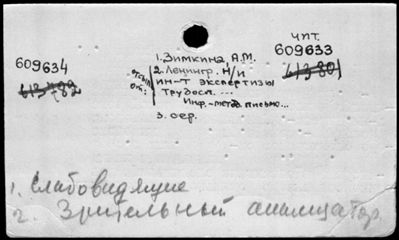 чит.
609633
613801
609634
613782
1. Зимкина, А.М.
отсыл. от:
2. Ленингр. н/и
ин-т экспертизы
трудосп. ...
Инф.-метод. письмо...
3. сер.
1. Слабовидящие
2. Зрительный анализатор.